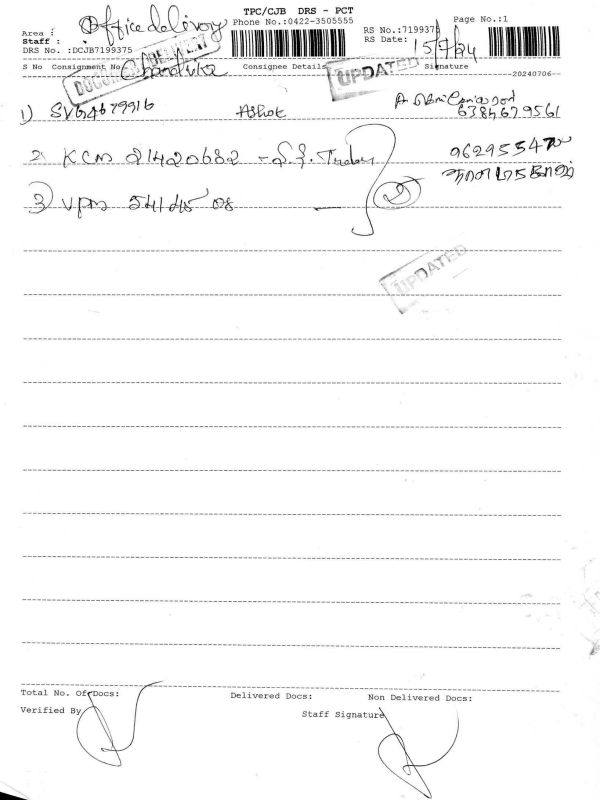 TPC/CJB DRS - PCT
Area : Office delivery
Phone No.:0422-3505555
RS No.:7199375
Page No.:1
Staff : Chandrika
RS Date: 15/7/24
DRS No. :DCJB7199375
DOCUMENT
S No Consignment No
Consignee Details
UPDATED
Signature
20240706
1) SVG4679916 Ashok
6384679561
2. KCM 21420682
3) VPM 54145108
UPDATED
Total No. Of Docs:
Delivered Docs:
Non Delivered Docs:
Verified By
Staff Signature